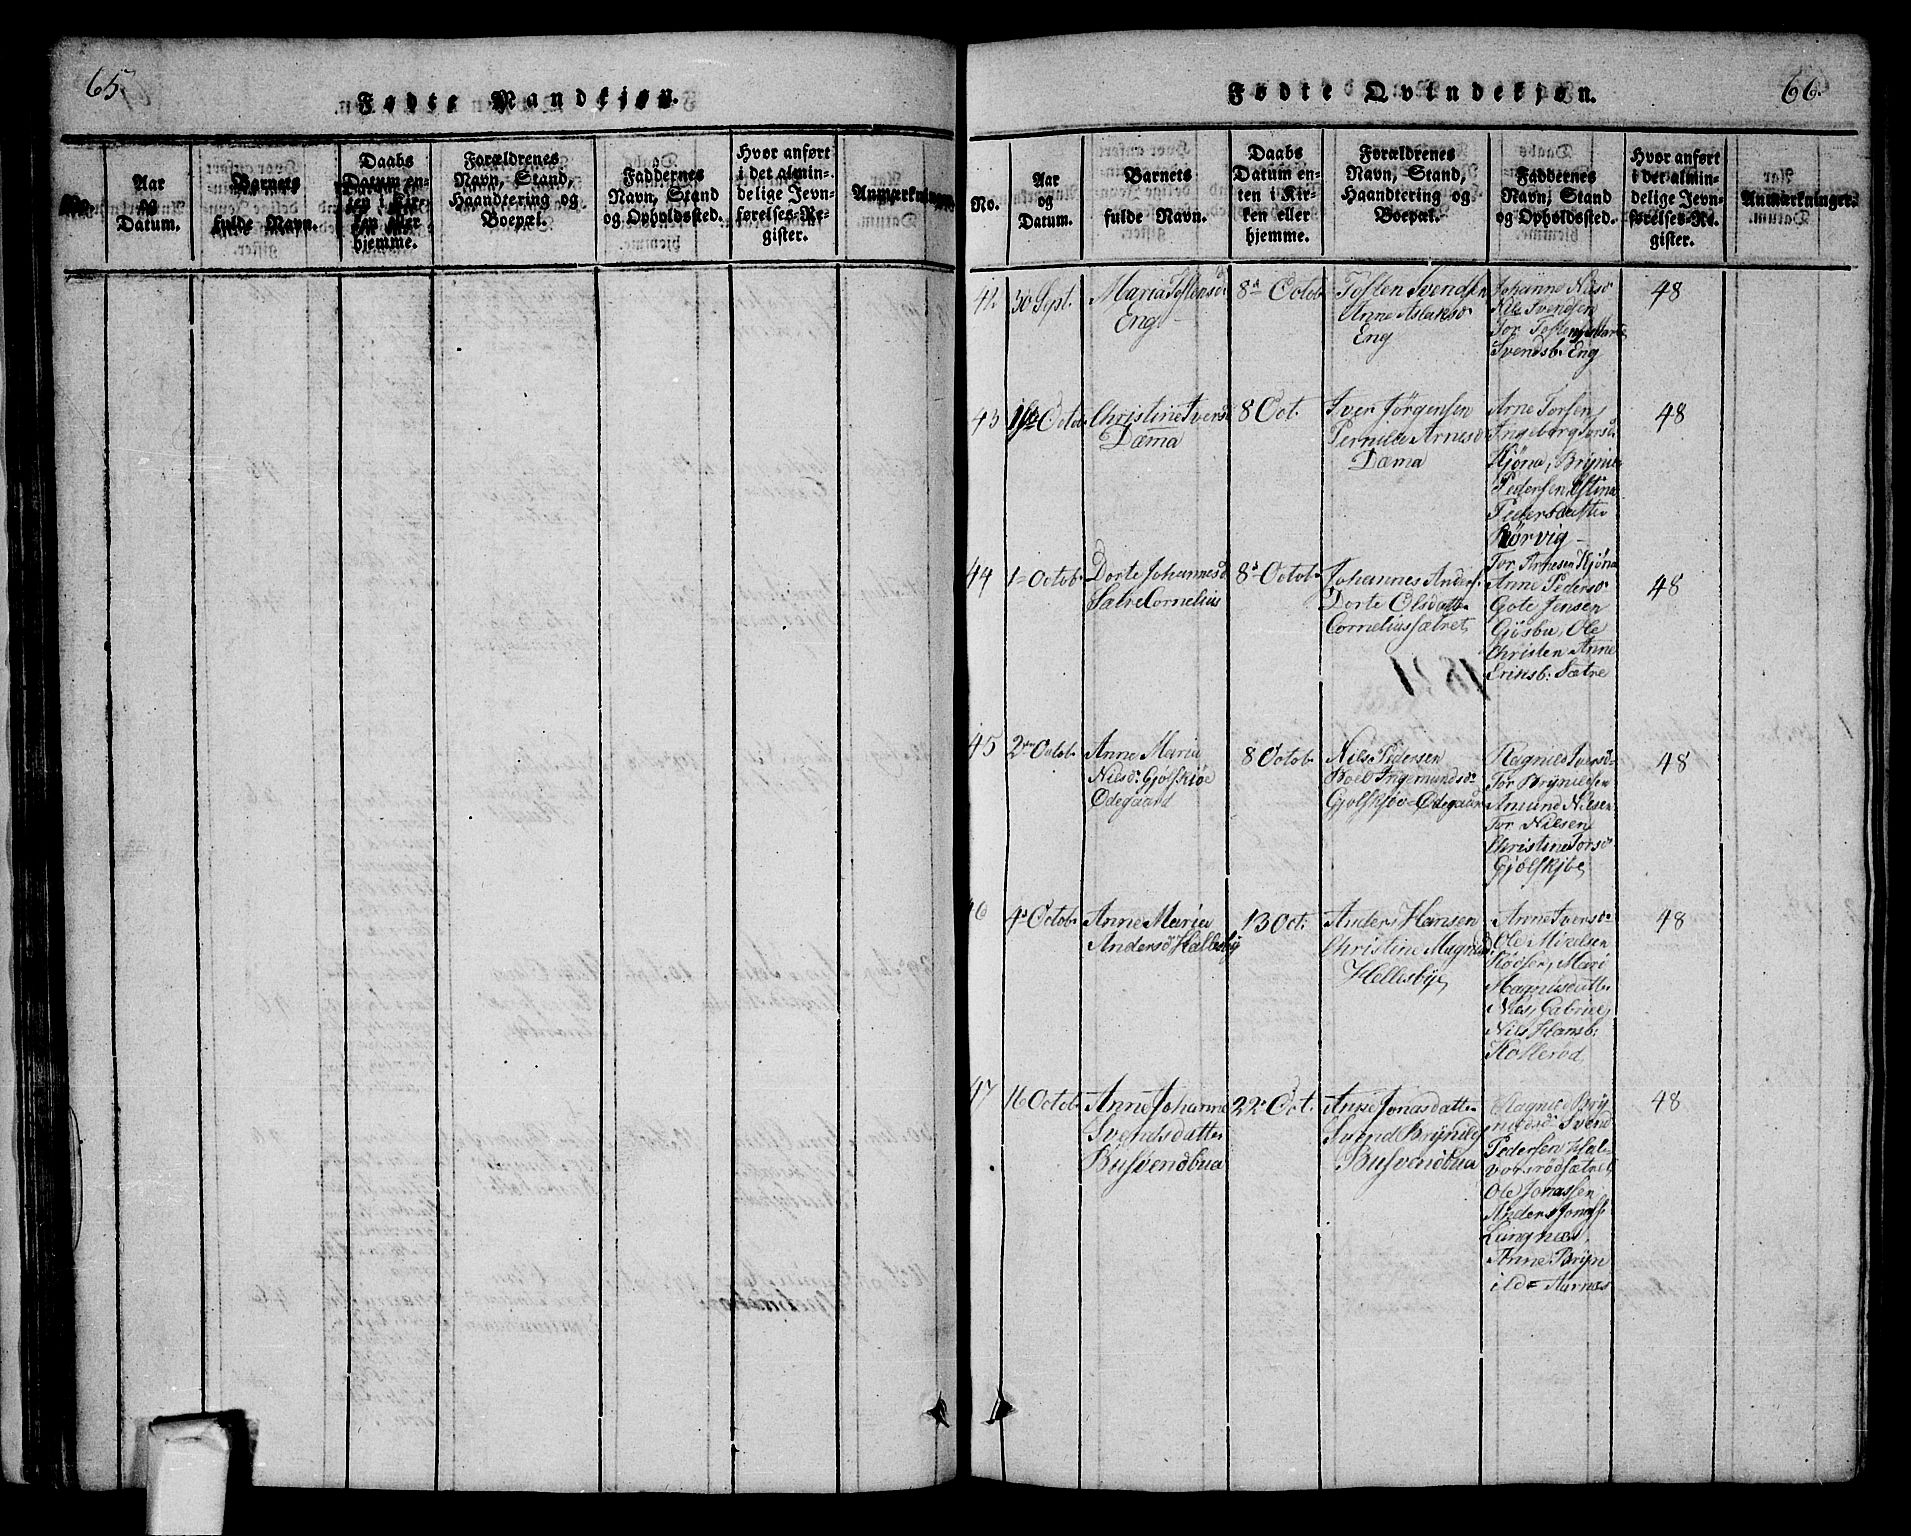 65.
Fødte Mandkjøn.
No.
Aar
og
Datum.
Barnets
fulde Navn.
Daabs
Datum en-
ten i Kir-
ken eller
hjemme.
Forældrenes
Navn, Stand,
Haandtering og
Boepæl.
Faddernes
Navn, Stand
og Opholdssted.
Hvor anført
i det almin-
delige Jevn-
førelses-Re-
gister.
Anmærkninger.
66.
Fødte Qvindekjøn.
No.
Aar
og
Datum.
Barnets
fulde Navn.
Daabs
Datum en-
ten i Kir-
ken eller
hjemme.
Forældrenes
Navn, Stand,
Haandtering og
Boepæl.
Faddernes
Navn, Stand
og Opholdssted.
Hvor anført
i det almin-
delige Jevn-
førelses-Re-
gister.
Anmærkninger.
42.
30 Sept.
Maria Tostensd
Eng
8d Octob
Tosten Svendsen
Anne Aslaksd
Eng
Johanne Nilsd
Nils Svendsen
Tor Tostensen
Svendsb. Eng
48
43
1ste Octob
Christine Iversd
Dæma
8 Oct.
Iver Jörgensen
Pernille Arnesd
Dæma
Arne Torsen,
Ingeborg Torsd
Kjöna, Brynild
Pedersen, Stina
Pedersdatter
Rörvig
48
44
1 Octob
Dorte Johannesd
Sætre Cornelius
8d Octob
Johannes Anders.
Dorte Olsdatte
Corneliussætret
Tor Arnesen Kjöna
Anne Pedersd
Gote Jensen
Gjösbu, Ole
Christen Anne
Eriksb: Sætre
48
1821
45
2den Octob
Anne Maria
Nilsd: Gjölskjöe
Ødegaard
8 Octob
Nils Pedersen
Boel Ingemundsd
Gjölskjöe Ødegaar
Ragnild Iversd
Tor Brynildsen
Amund Nilsen
Tor Nilsen
Christine Torsd
Gjölskjöe
48
46
4d Octob
Anne Maria
Andersd Hallesby
13 Oct:
Anders Hansen
Christine Magnusd.
Hellesbye
Anne Iversd
Ole Mikelsen
Rödser, Mari
Magnusdatte
Nils, Gabriel,
Nils Hansb:
Kollerod
48
47
16 Octob
Anne Johanne
Svendsdatte
Busvendbua
22d Oct.
Anne Jonasdatte
Svend Brynilds
Busvendbua
Ragnild Bryn
nildsd Svend
Pedersen Hal-
vorsrödsætret
Ole Jonassen
Anders Jonass
Langnæs,
Anne Bryn
ild Aarnæs
48